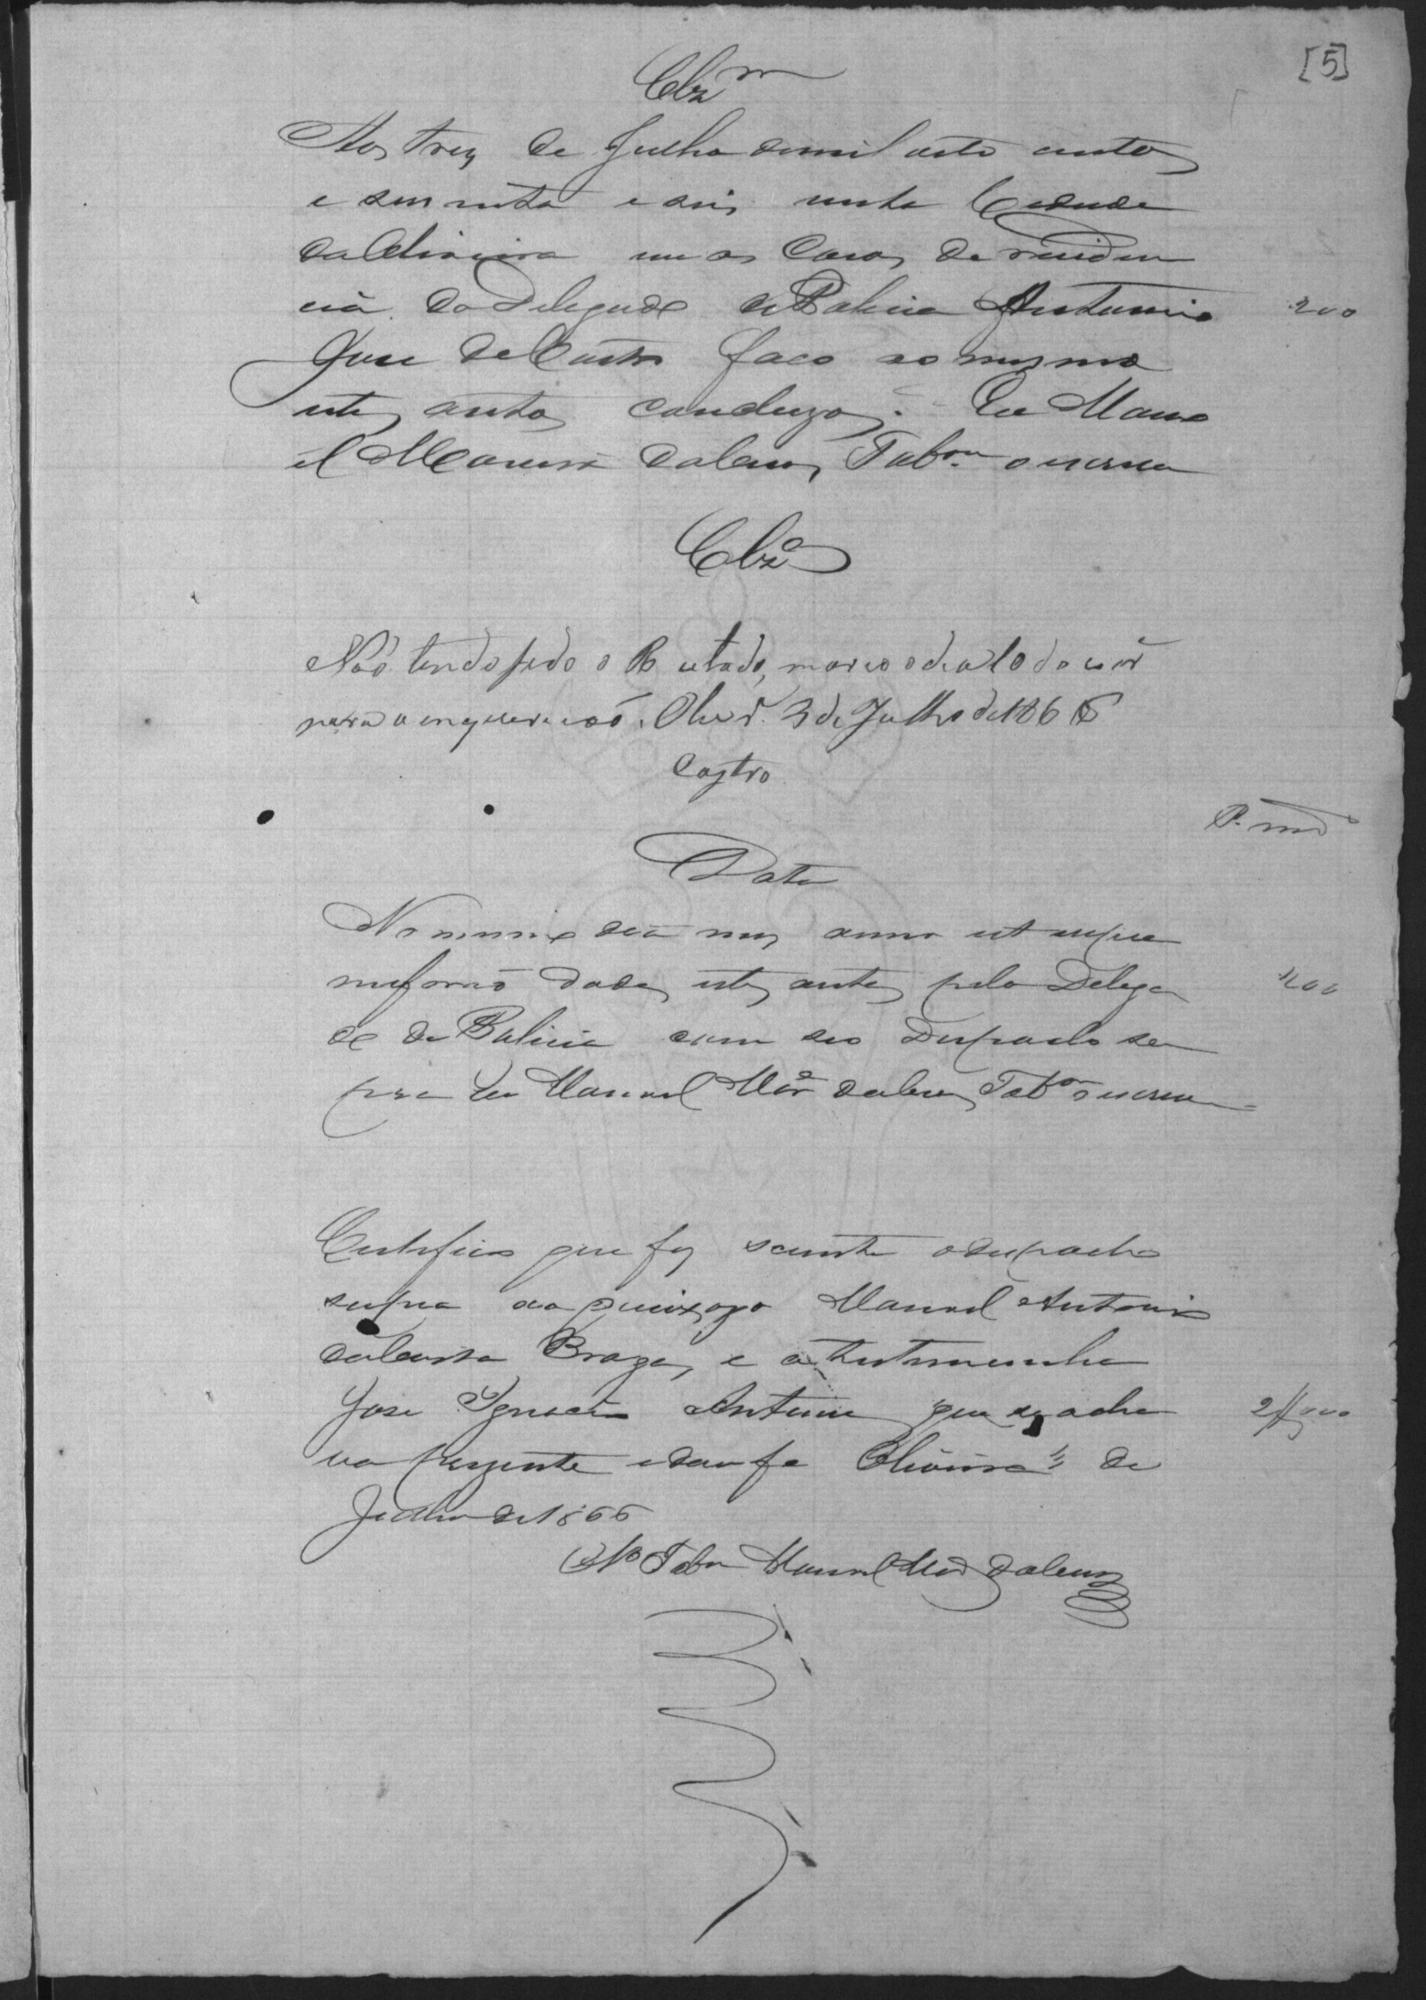 [5]
Clzm
Aos trez de Julho de mil oito centos
e sessenta e seis nesta Cidade
da Oliveira em as Casas de residen
cia do Delegado de Policia Antonio 200
Jose de Castro faço ao mesmo
estes autos concluzos. Eu Mano
el Moreira dalem, Tabam o escrevi
Clzo
Não tendo sido o R citado, marco o dia 10 do corr
para a inquirição. Olivr. 3 de Julho de 1866
Castro
Data
No mesmo dia mez anno ut supra
me forão dados estes autos pelo Delega 200
do de Policia com seo Despacho su
pra Eu Manoel Mor dalem, Tabam o escrevi
Certifico que fiz sciente o despacho
supra ao queixozo Manoel Antonio
da Costa Braga, e a testemunha
Jose Ignacio Antonio que se acha 2$000
va prezente e dou fe Oliveira de
Julho de 1866
O Tabam Manoel Mor dalem